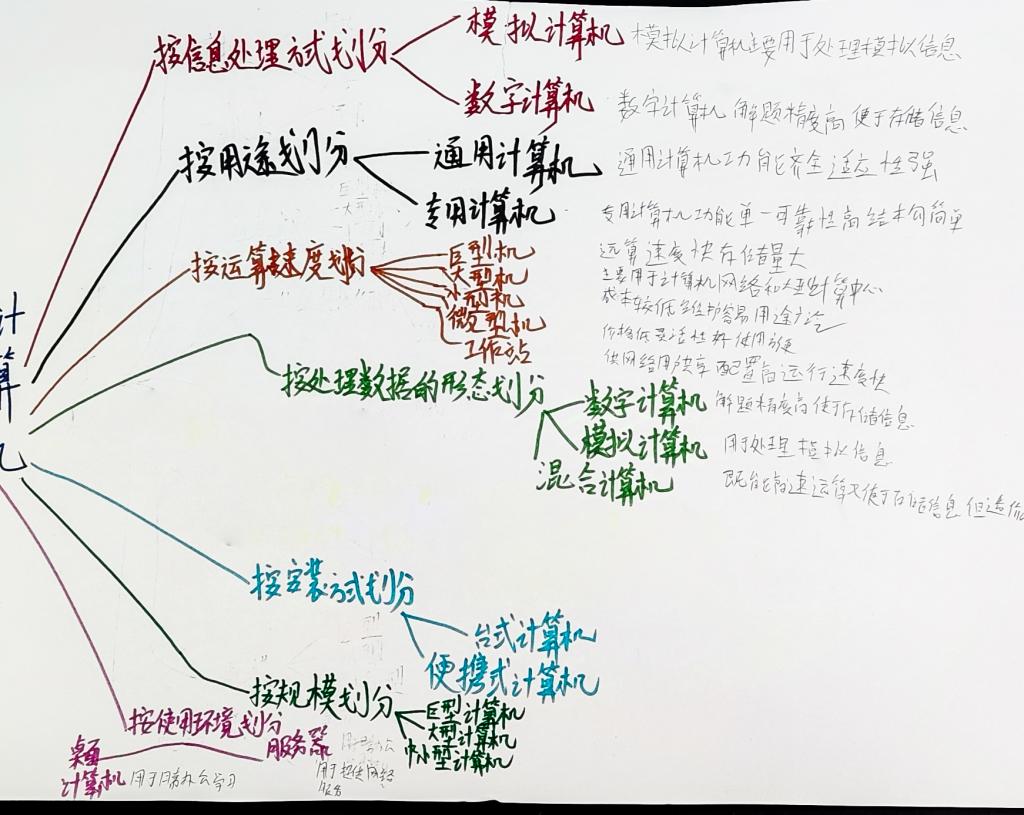 计算机
按信息处理方式划分
模拟计算机 模拟计算机主要用于处理模拟信息
数字计算机 数字计算机解题精度高便于存储信息
按用途划分
通用计算机 通用计算机功能齐全适应性强
专用计算机 专用计算机功能单一可靠性高结构简单
按运算速度划分
巨型机 运算速度快存储量大
大型机 主要用于计算机网络和大型计算中心
小型机 成本较低 容易用途广泛
微型机 价格低灵活性好使用方便
工作站 供网络用 配置高运行速度快
按处理数据的形态划分
数字计算机 解题精度高便于存储信息
模拟计算机 用于处理模拟信息
混合计算机 既能高速运算又便于存储信息但造价
按安装方式划分
台式计算机
便携式计算机
按规模划分
巨型计算机
大型计算机
中小型计算机
按使用环境划分
桌面计算机 用于日常办公学习
服务器 用于提供网络服务